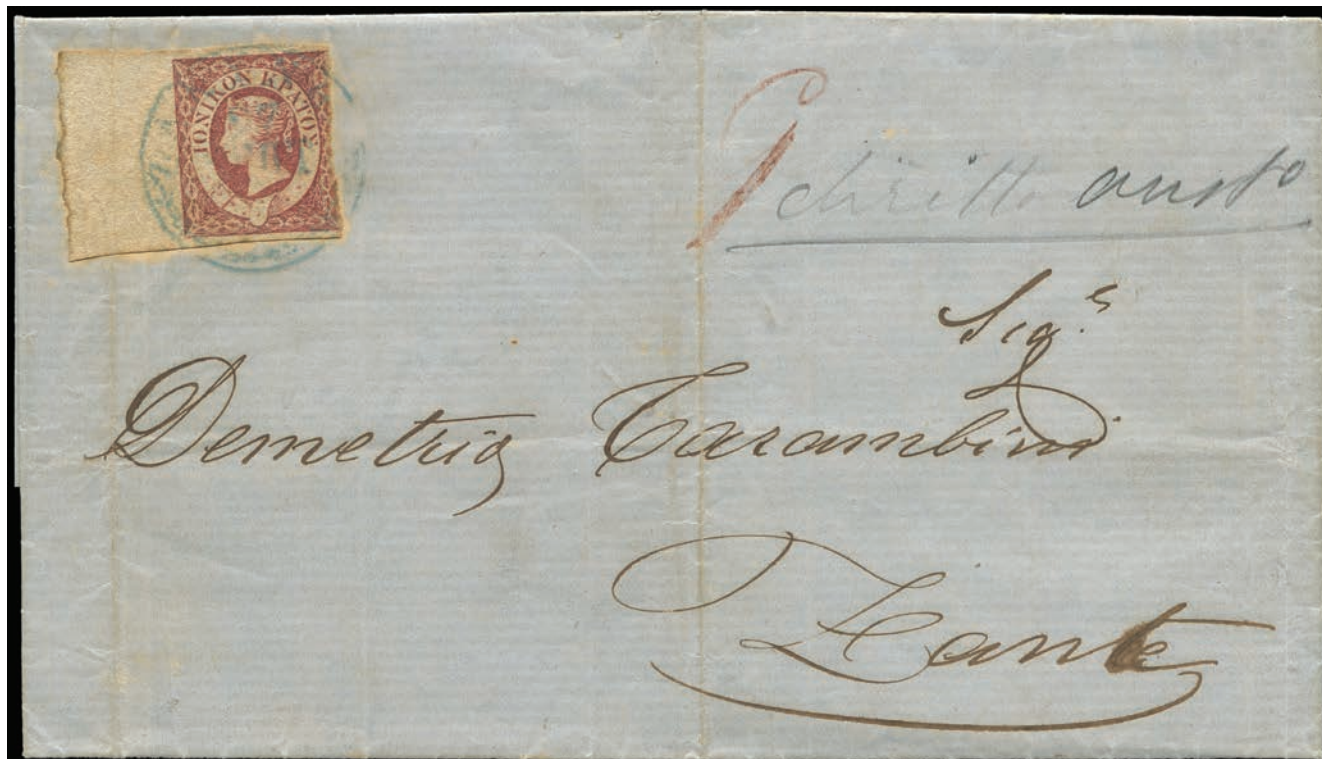 ΙΟΝΙΚΟΝ ΚΡΑΤΟΣ
diritto aust°
Sig.r
Demetrio Carambini
Zante